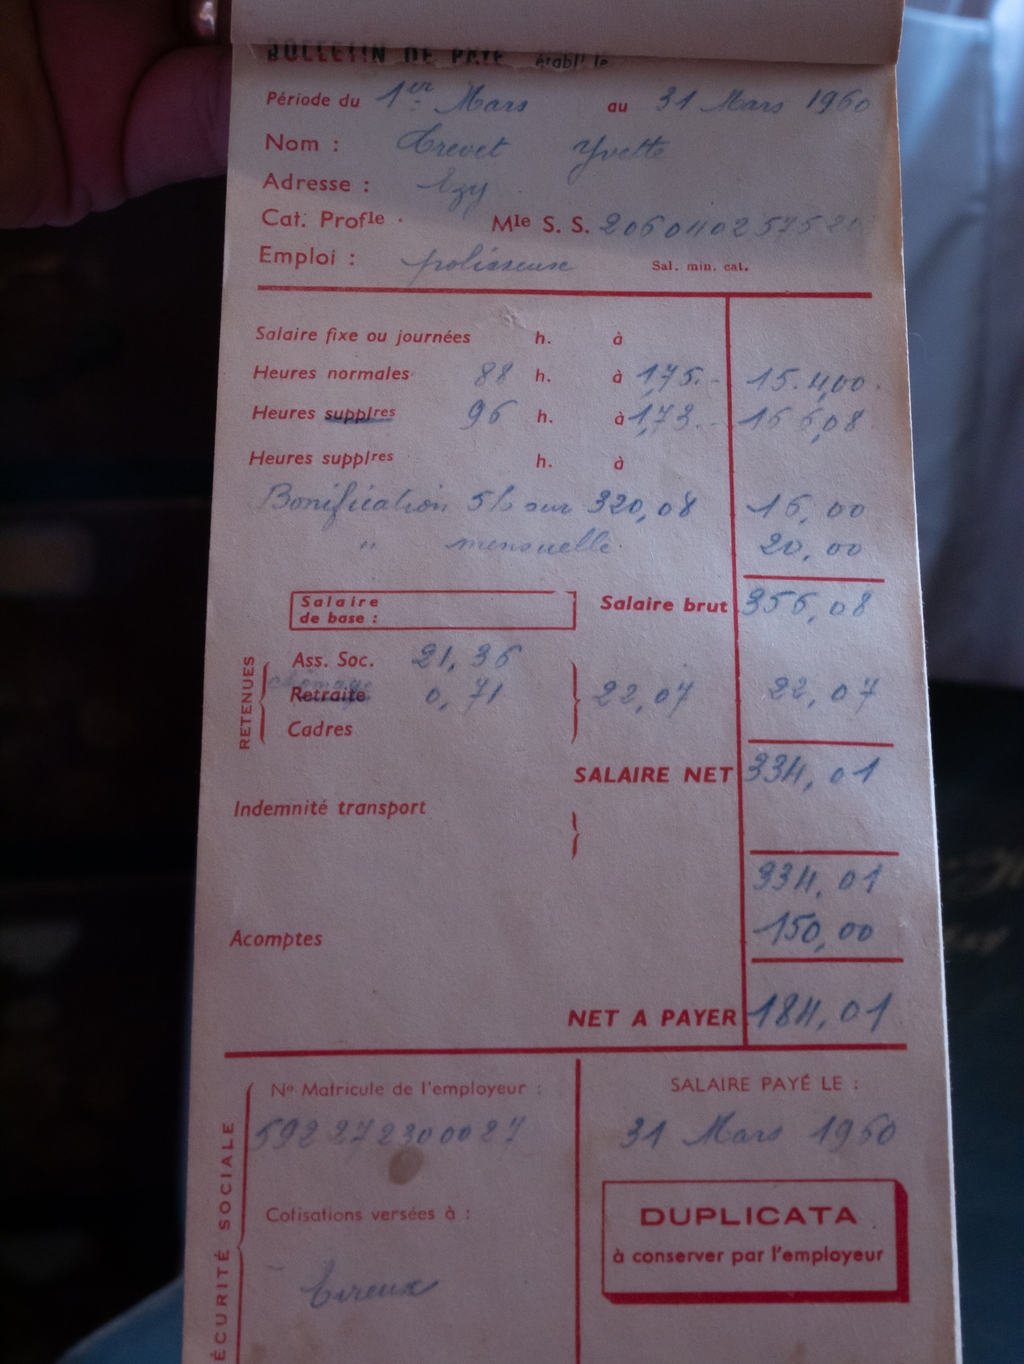 BULLETIN DE PAYE établi le
Période du 1er Mars au 31 Mars 1960
Nom : Trevet Yvette
Adresse : Ezy
Cat. Profle. Mle S. S. 2060402575
Emploi : polisseuse Sal. min. cat.
Salaire fixe ou journées h. à
Heures normales 88 h. à 1,75 15.4,00
Heures supplres 96 h. à 1,73 166,08
Heures supplres h. à
Bonification 5% sur 320,08 16,00
" mensuelle. 20,00
Salaire de base : Salaire brut 356,08
RETENUES
Ass. Soc. 21,36
chômage
Retraite 0,71 22,07 22,07
Cadres
SALAIRE NET 334,01
Indemnité transport
334,01
Acomptes 150,00
NET A PAYER 184,01
SÉCURITÉ SOCIALE
No Matricule de l'employeur : SALAIRE PAYÉ LE :
592 27230027 31 Mars 1960
Cotisations versées à : DUPLICATA
à conserver par l'employeur
Evreux